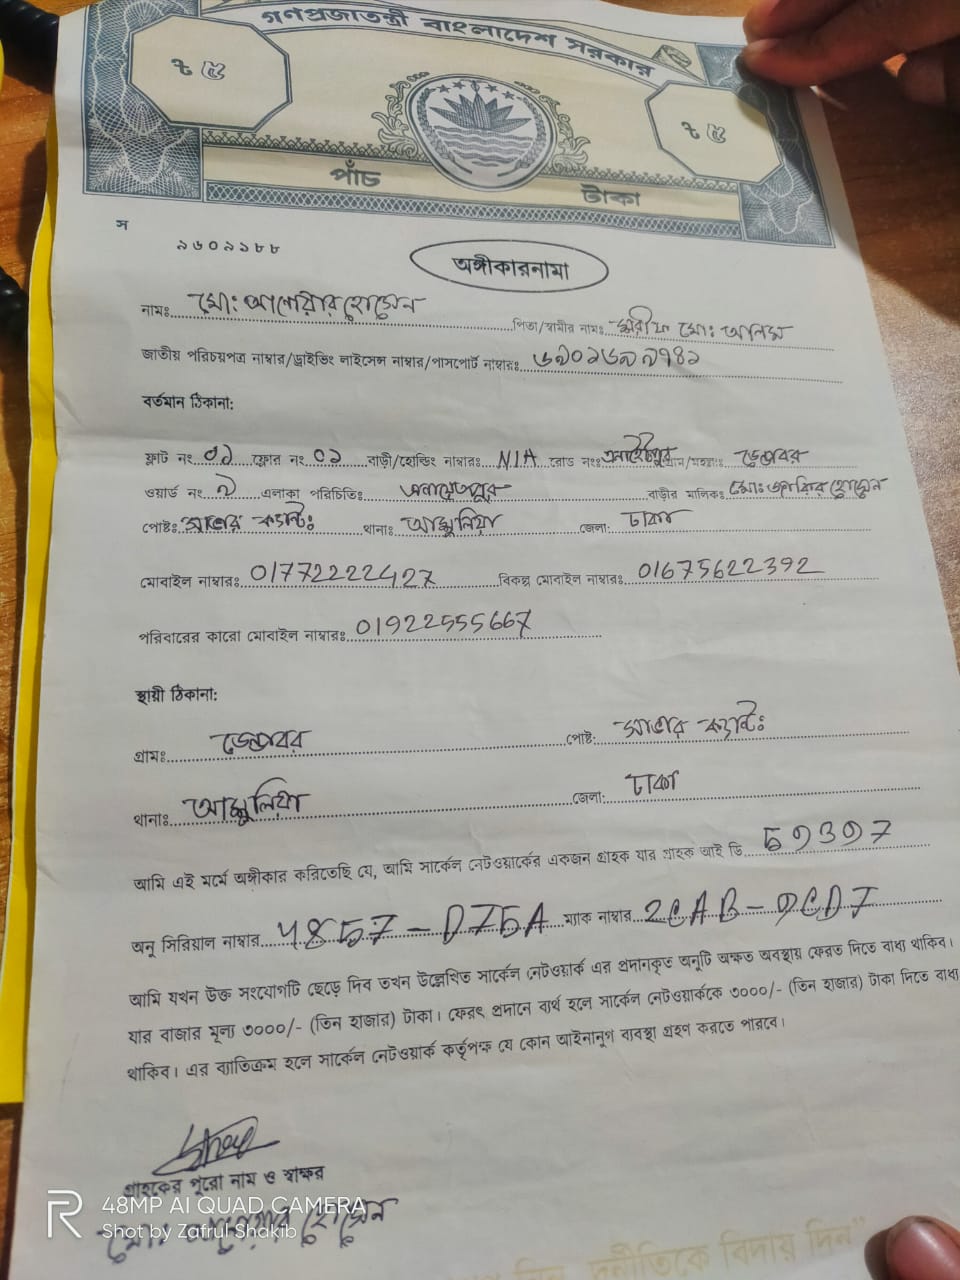 গণপ্রজাতন্ত্রী বাংলাদেশ সরকার
৳ ৫ ৳ ৫
পাঁচ টাকা
স
৯৬০৯১৮৮
অঙ্গীকারনামা
নামঃ মো: আনোয়ার হোসেন পিতা/স্বামীর নামঃ শরীফ মো: আলম
জাতীয় পরিচয়পত্র নাম্বার/ড্রাইভিং লাইসেন্স নাম্বার/পাসপোর্ট নাম্বারঃ
বর্তমান ঠিকানা:
ফ্লাট নং ০১ ফ্লোর নং ০১ বাড়ী/হোল্ডিং নাম্বারঃ N/A রোড নংঃ এনায়েতপুর গ্রাম/মহল্লাঃ ডেন্ডাবর
ওয়ার্ড নং ৭ এলাকা পরিচিতিঃ এনায়েতপুর বাড়ীর মালিকঃ মোঃ হোসেন
পোষ্টঃ সাভার ক্যান্টঃ থানাঃ আশুলিয়া জেলা: ঢাকা
মোবাইল নাম্বারঃ 01772222427 বিকল্প মোবাইল নাম্বারঃ 01675622392
পরিবারের কারো মোবাইল নাম্বারঃ 01922555667
স্থায়ী ঠিকানা:
গ্রামঃ ডেন্ডাবর পোষ্ট: সাভার ক্যান্টঃ
থানাঃ আশুলিয়া জেলা: ঢাকা
আমি এই মর্মে অঙ্গীকার করিতেছি যে, আমি সার্কেল নেটওয়ার্কের একজন গ্রাহক যার গ্রাহক আই ডি
অনু সিরিয়াল নাম্বার 4857-D75A ম্যাক নাম্বার 2CAB-9CD7
আমি যখন উক্ত সংযোগটি ছেড়ে দিব তখন উল্লেখিত সার্কেল নেটওয়ার্ক এর প্রদানকৃত অনুটি অক্ষত অবস্থায় ফেরত দিতে বাধ্য থাকিব।
যার বাজার মূল্য ৩০০০/- (তিন হাজার) টাকা। ফেরৎ প্রদানে ব্যর্থ হলে সার্কেল নেটওয়ার্ককে ৩০০০/- (তিন হাজার) টাকা দিতে বাধ্য
থাকিব। এর ব্যতিক্রম হলে সার্কেল নেটওয়ার্ক কর্তৃপক্ষ যে কোন আইনানুগ ব্যবস্থা গ্রহণ করতে পারবে।
গ্রাহকের পুরো নাম ও স্বাক্ষর
মো: আনোয়ার হোসেন
48MP AI QUAD CAMERA
Shot by Zafrul Shakib
দিন, দুর্নীতিকে বিদায় দিন"